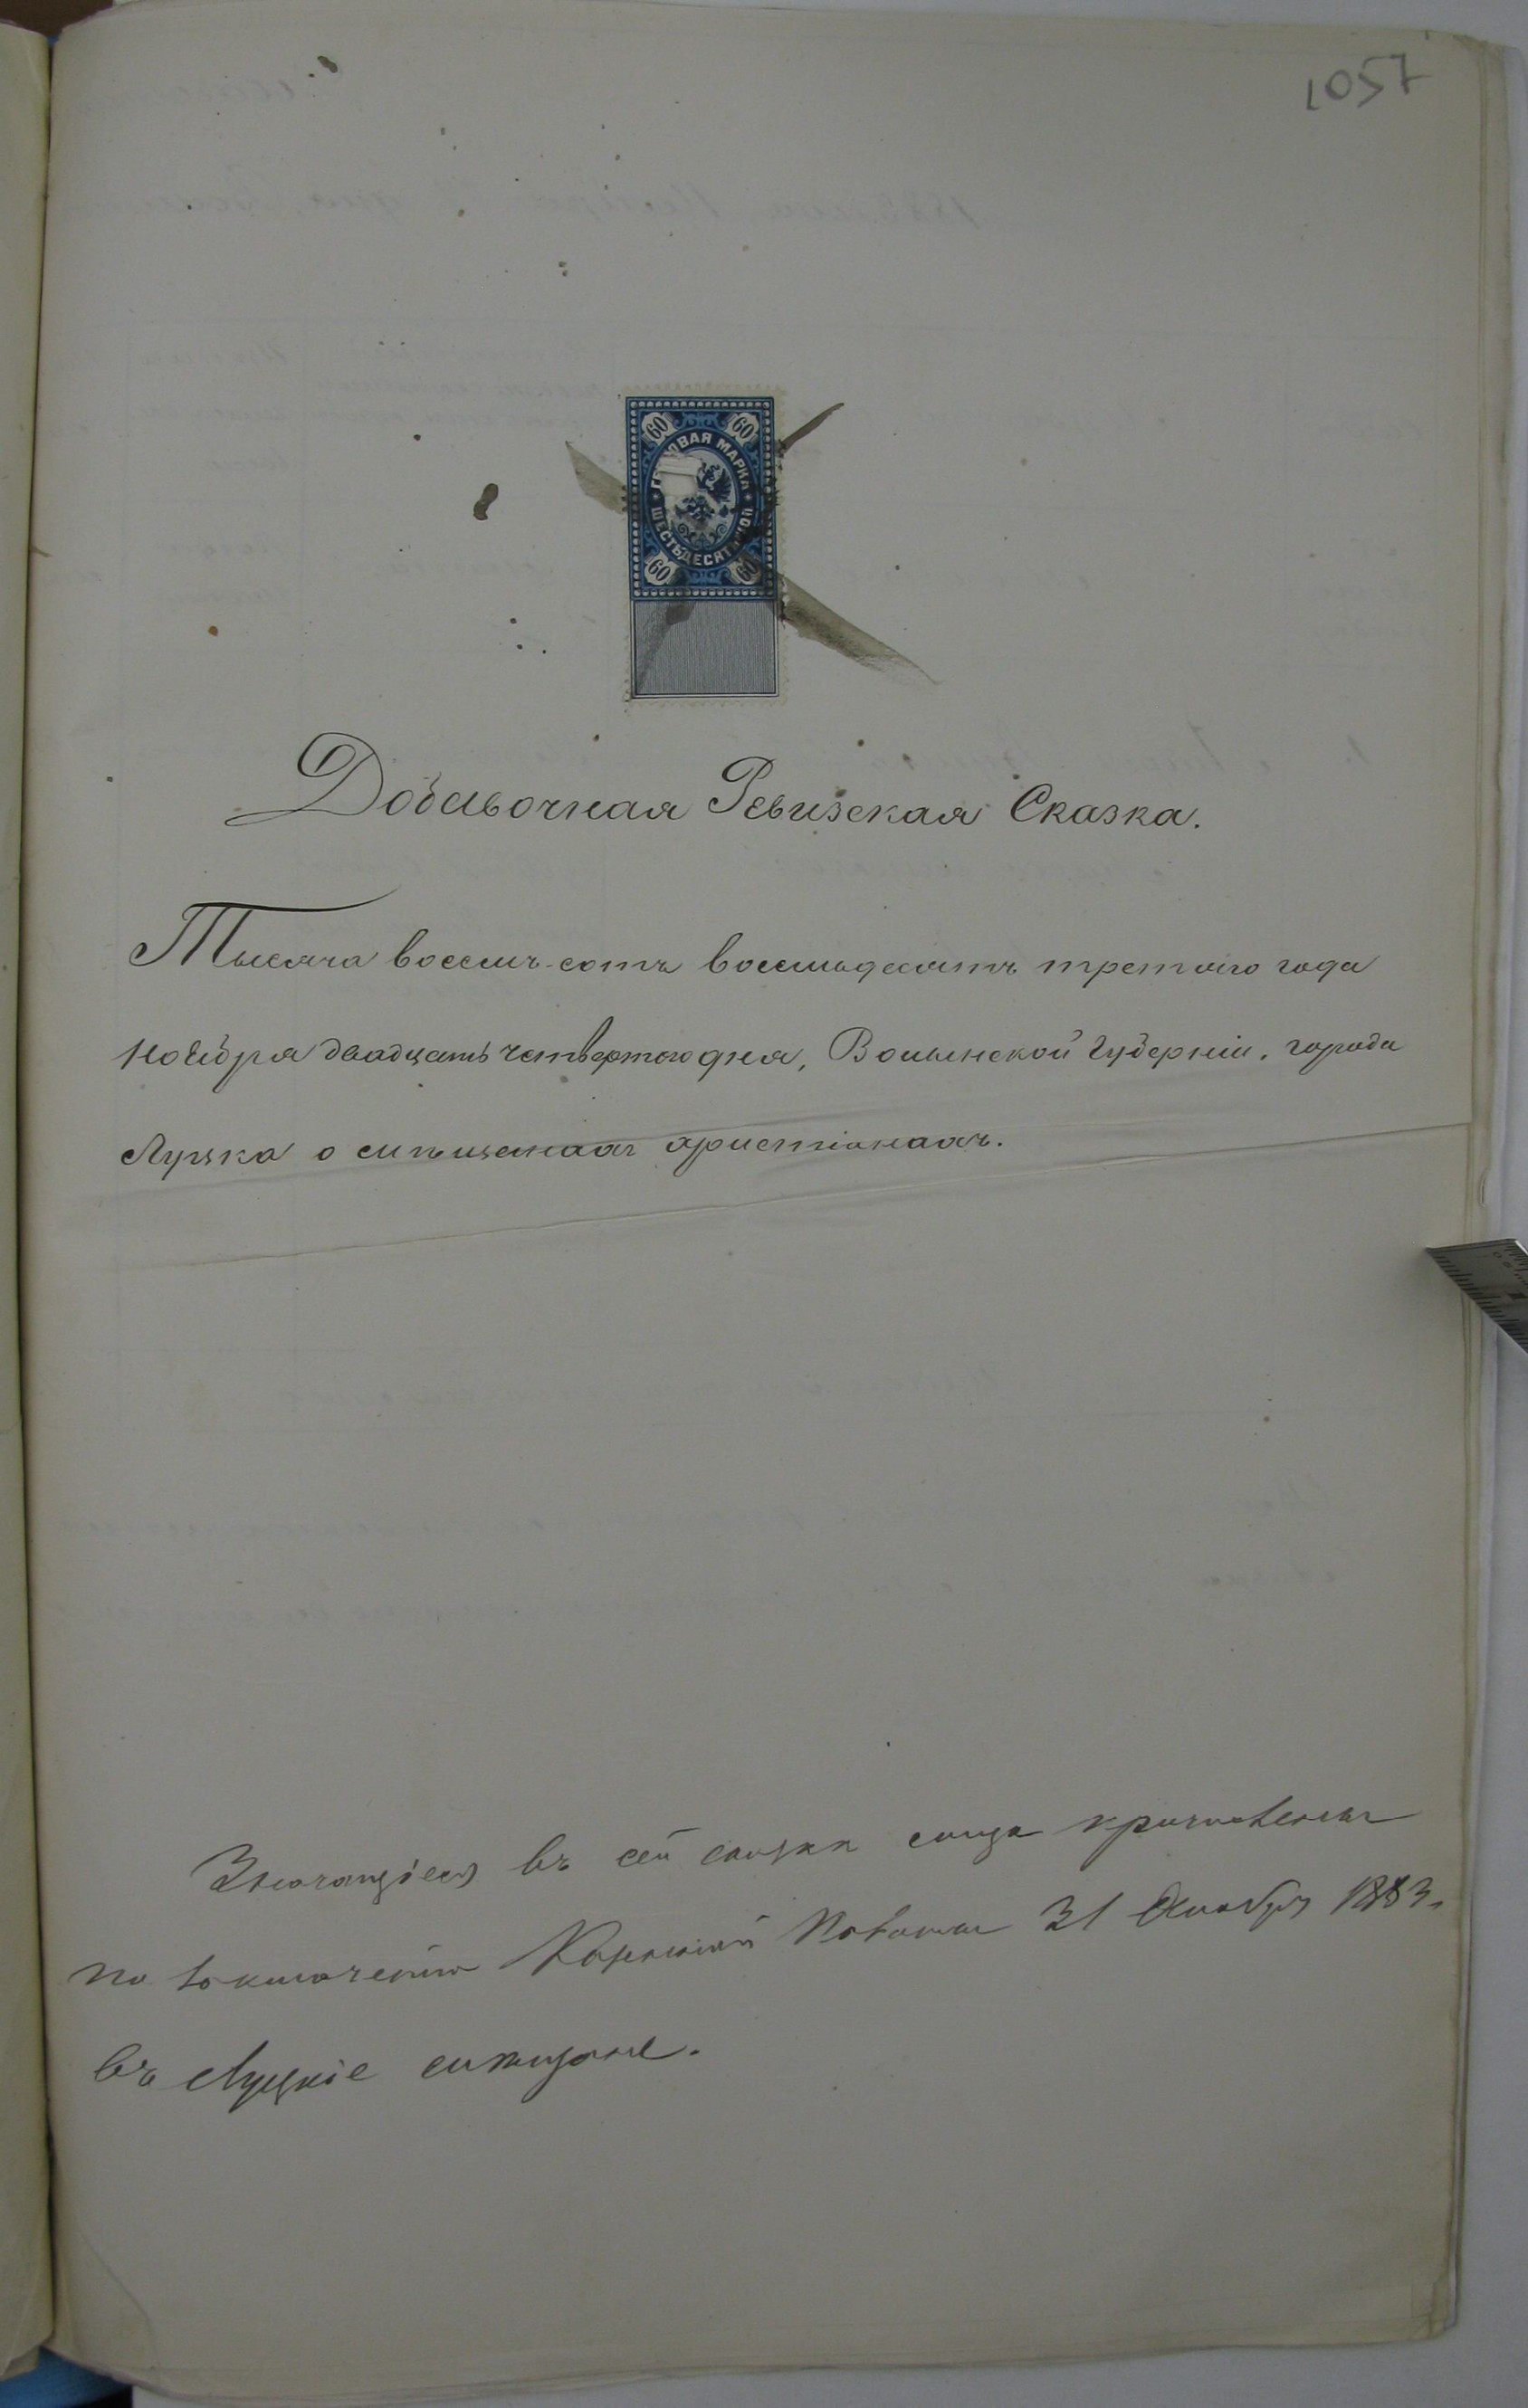 1057
60 60
ГЕРБОВАЯ МАРКА
ШЕСТЬДЕСЯТЪ КОП
60 60
Добавочная Ревизская Сказка.
Тысяча восемь-сотъ восемьдесятъ третьяго года
Ноября двадцать четвертого дня, Волынской Губерніи, города
Луцка о мѣщанахъ христіанахъ.
Значащіеся въ сей сказкѣ лица причислены
по заключенію Казенной Палаты 31 Декабря 1883 г.
въ Луцкіе мѣщане.